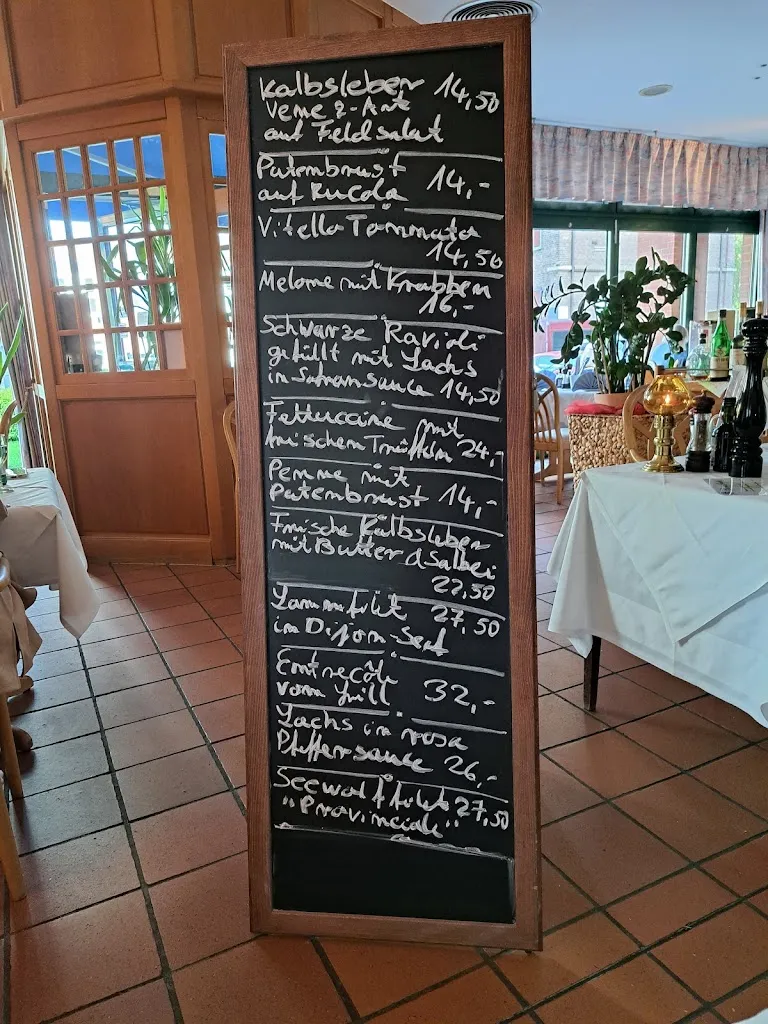 Kalbsleber 14,50
Vene z-Art
auf Feldsalat
Putenbrust 14,-
auf Rucola
Vitello Tonnato
14,50
Melone mit Krabben
16,-
Schwarze Ravioli
gefüllt mit Lachs
in Safransauce 14,50
Fettuccine mit
frischem Trüffeln 24,-
Penne mit
Putenbrust 14,-
Frische Kalbsleber
mit Butter & Salbei
22,50
Lammfilet 27,50
in Dijon-Senf
Entrecôte
vom Grill 32,-
Lachs in rosa
Pfeffersauce 26,-
Seewolffilet 27,50
"Provinciale"